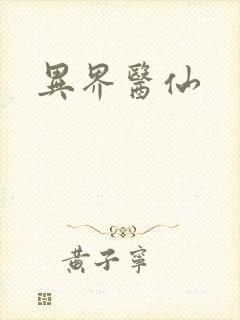 異界醫仙
黃子寧